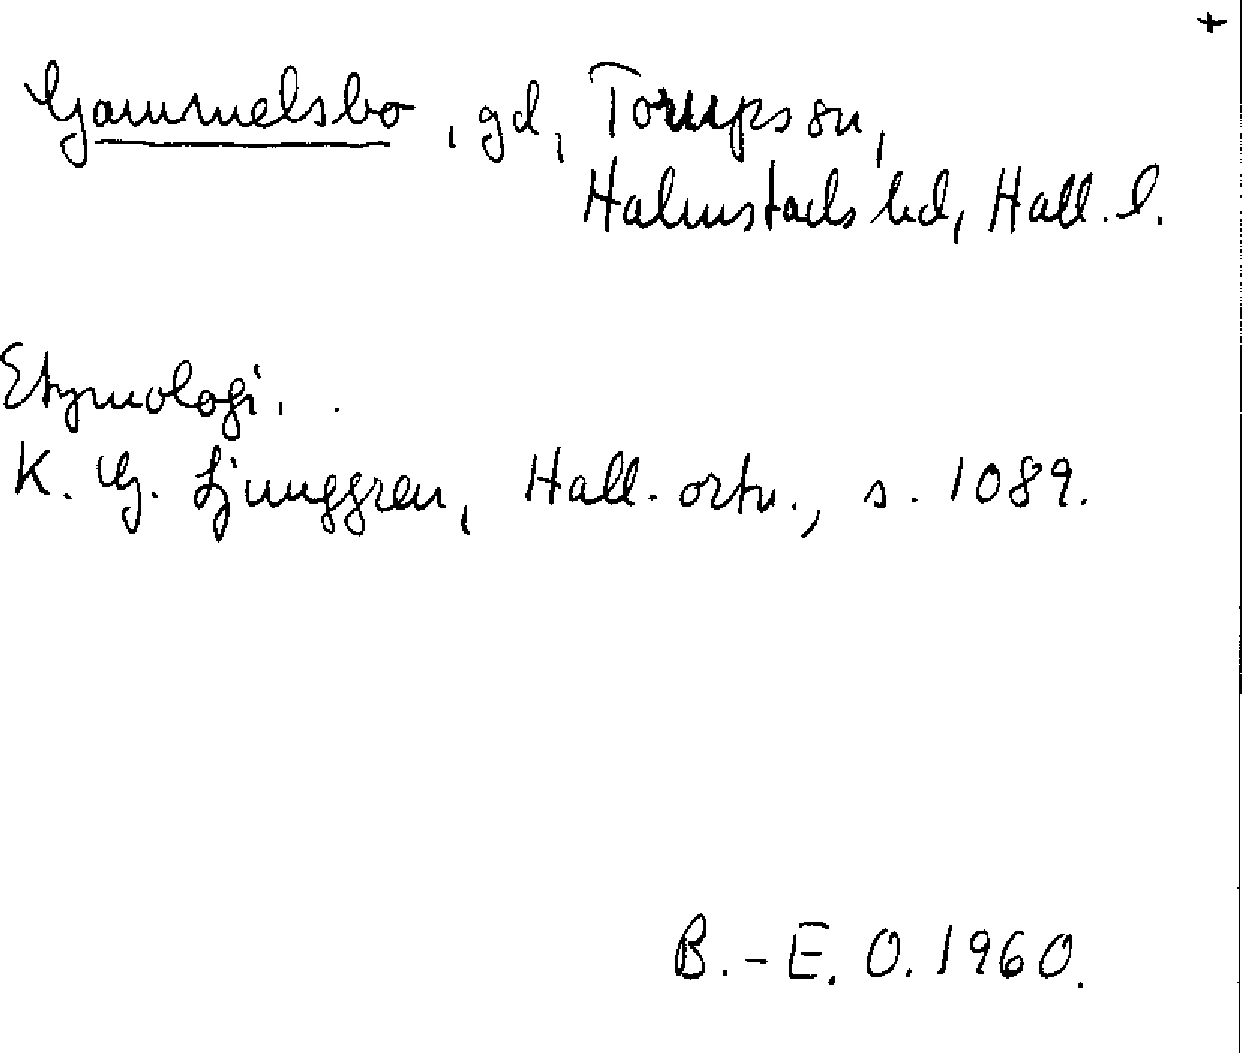 +
Gammelsbo, gd, Torups sn,
Halmstads hd, Hall. l.
Etymologi.
K. G. Ljunggren, Hall. ortn., s. 1089.
B.-E. O. 1960.